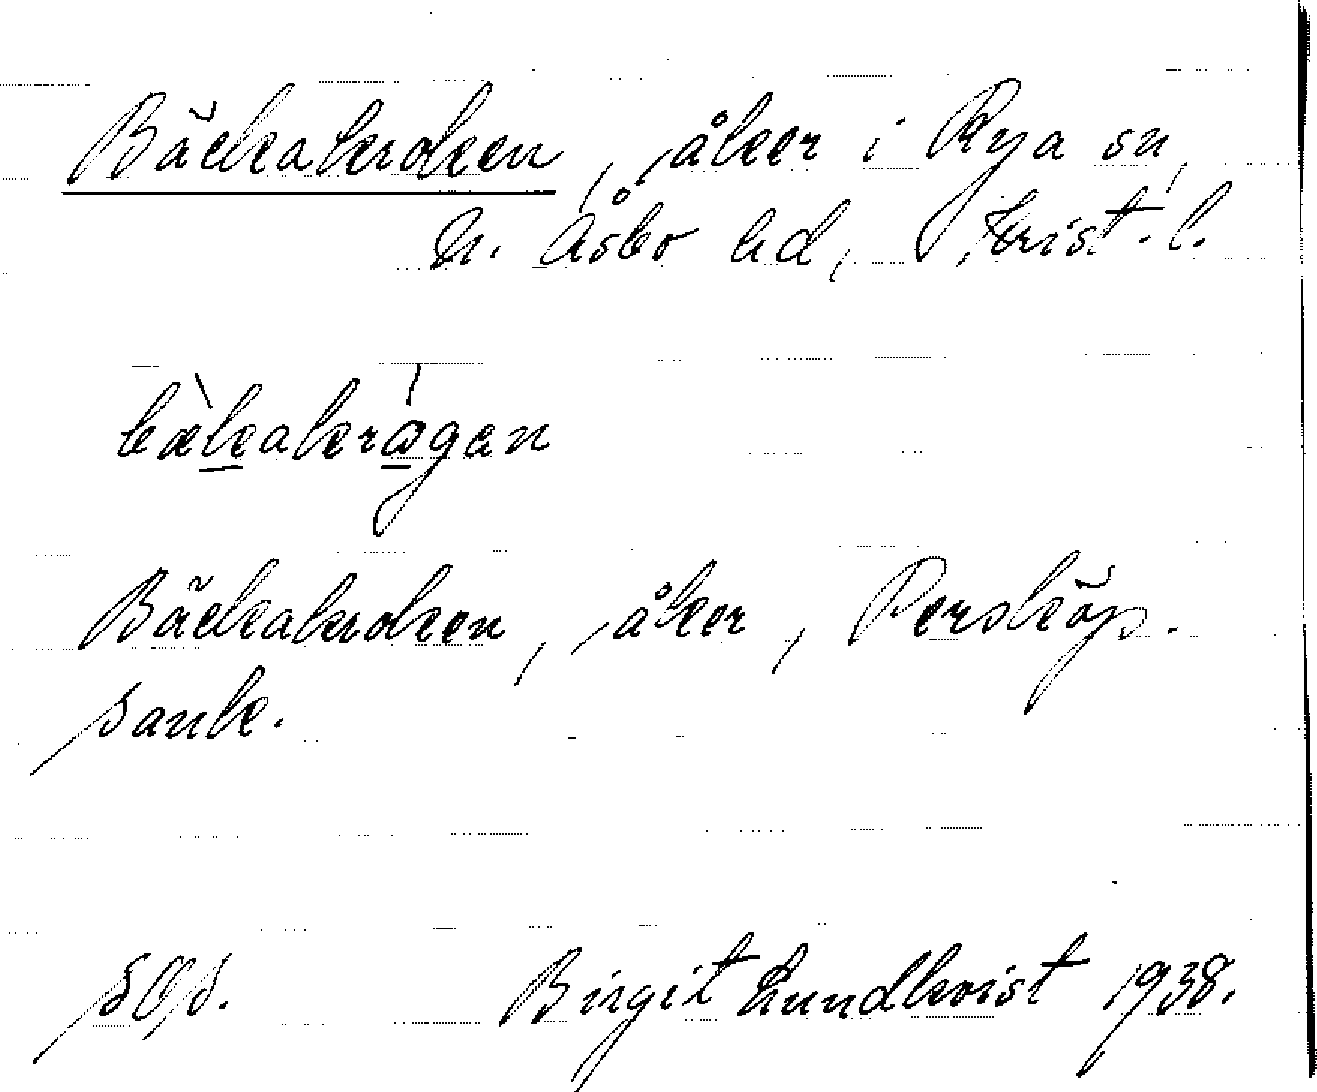 Bäckakroken, åker i Rya sn,
N. Åsbo hd, Krist. l.
bækakrågen
Bäckakroken, åker, Persköp.
sank.
SOS. Birgit Lundkvist 1938.